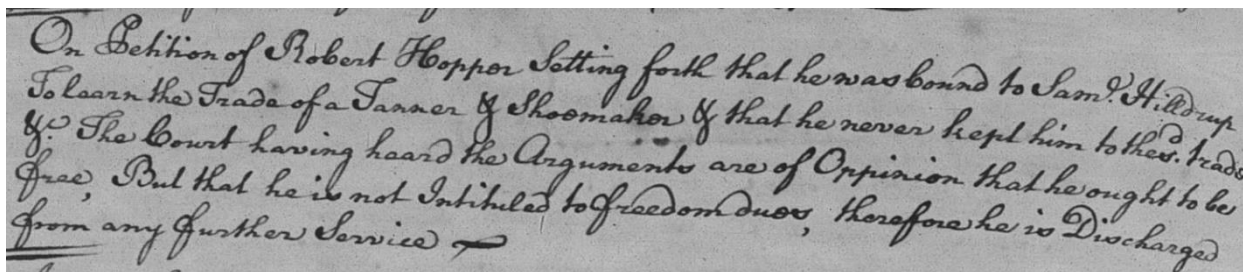 On Petition of Robert Hopper Setting forth that he was bound to Sam.^l Hilldrup
To learn the Trade of a Tanner & Shoemaker & that he never kept him to the s.^d trade
&.^c The Court having heard the Arguments are of Oppinion that he ought to be
free, But that he is not Intituled to freedom dues, therefore he is Discharged
from any further Service